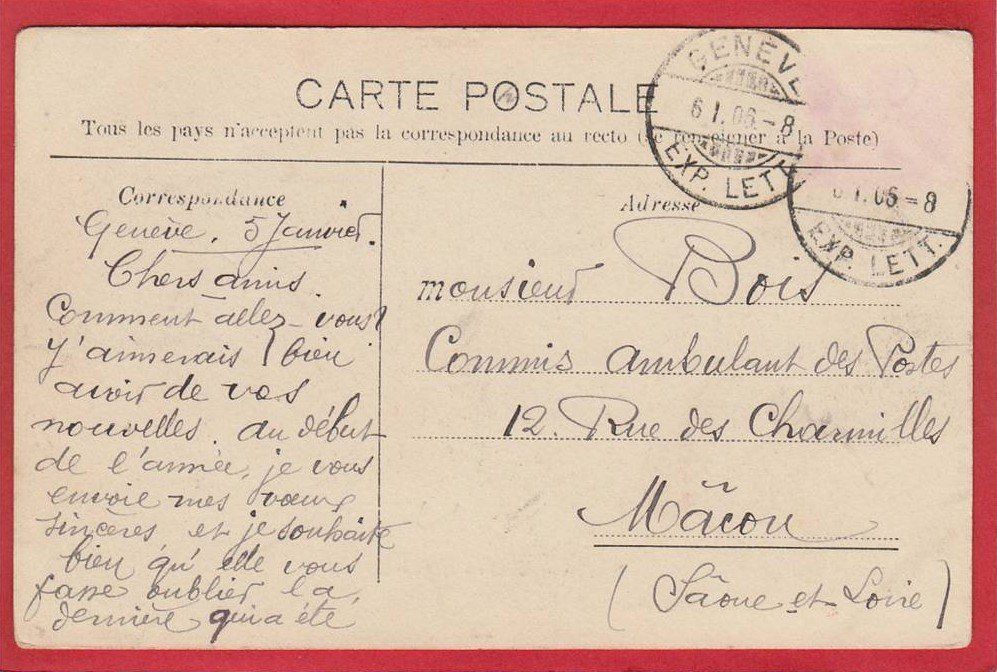 CARTE POSTALE
Tous les pays n'acceptent pas la correspondance au recto (se renseigner à la Poste)
Correspondance
Genève, 5 Janvier.
Chers amis
Comment allez-vous?
J'aimerais bien
avoir de vos
nouvelles. au début
de l'année, je vous
envoie mes vœux
sincères, et je souhaite
bien qu'elle vous
fasse oublier la
dernière qui a été
Adresse
monsieur Bois
Commis ambulant des Postes
12. Rue des Charmilles
Mâcon
(Sâone-et-Loire)
GENÈVE
6 I. 06 - 8
EXP. LETT.
6 I. 06 - 8
EXP. LETT.